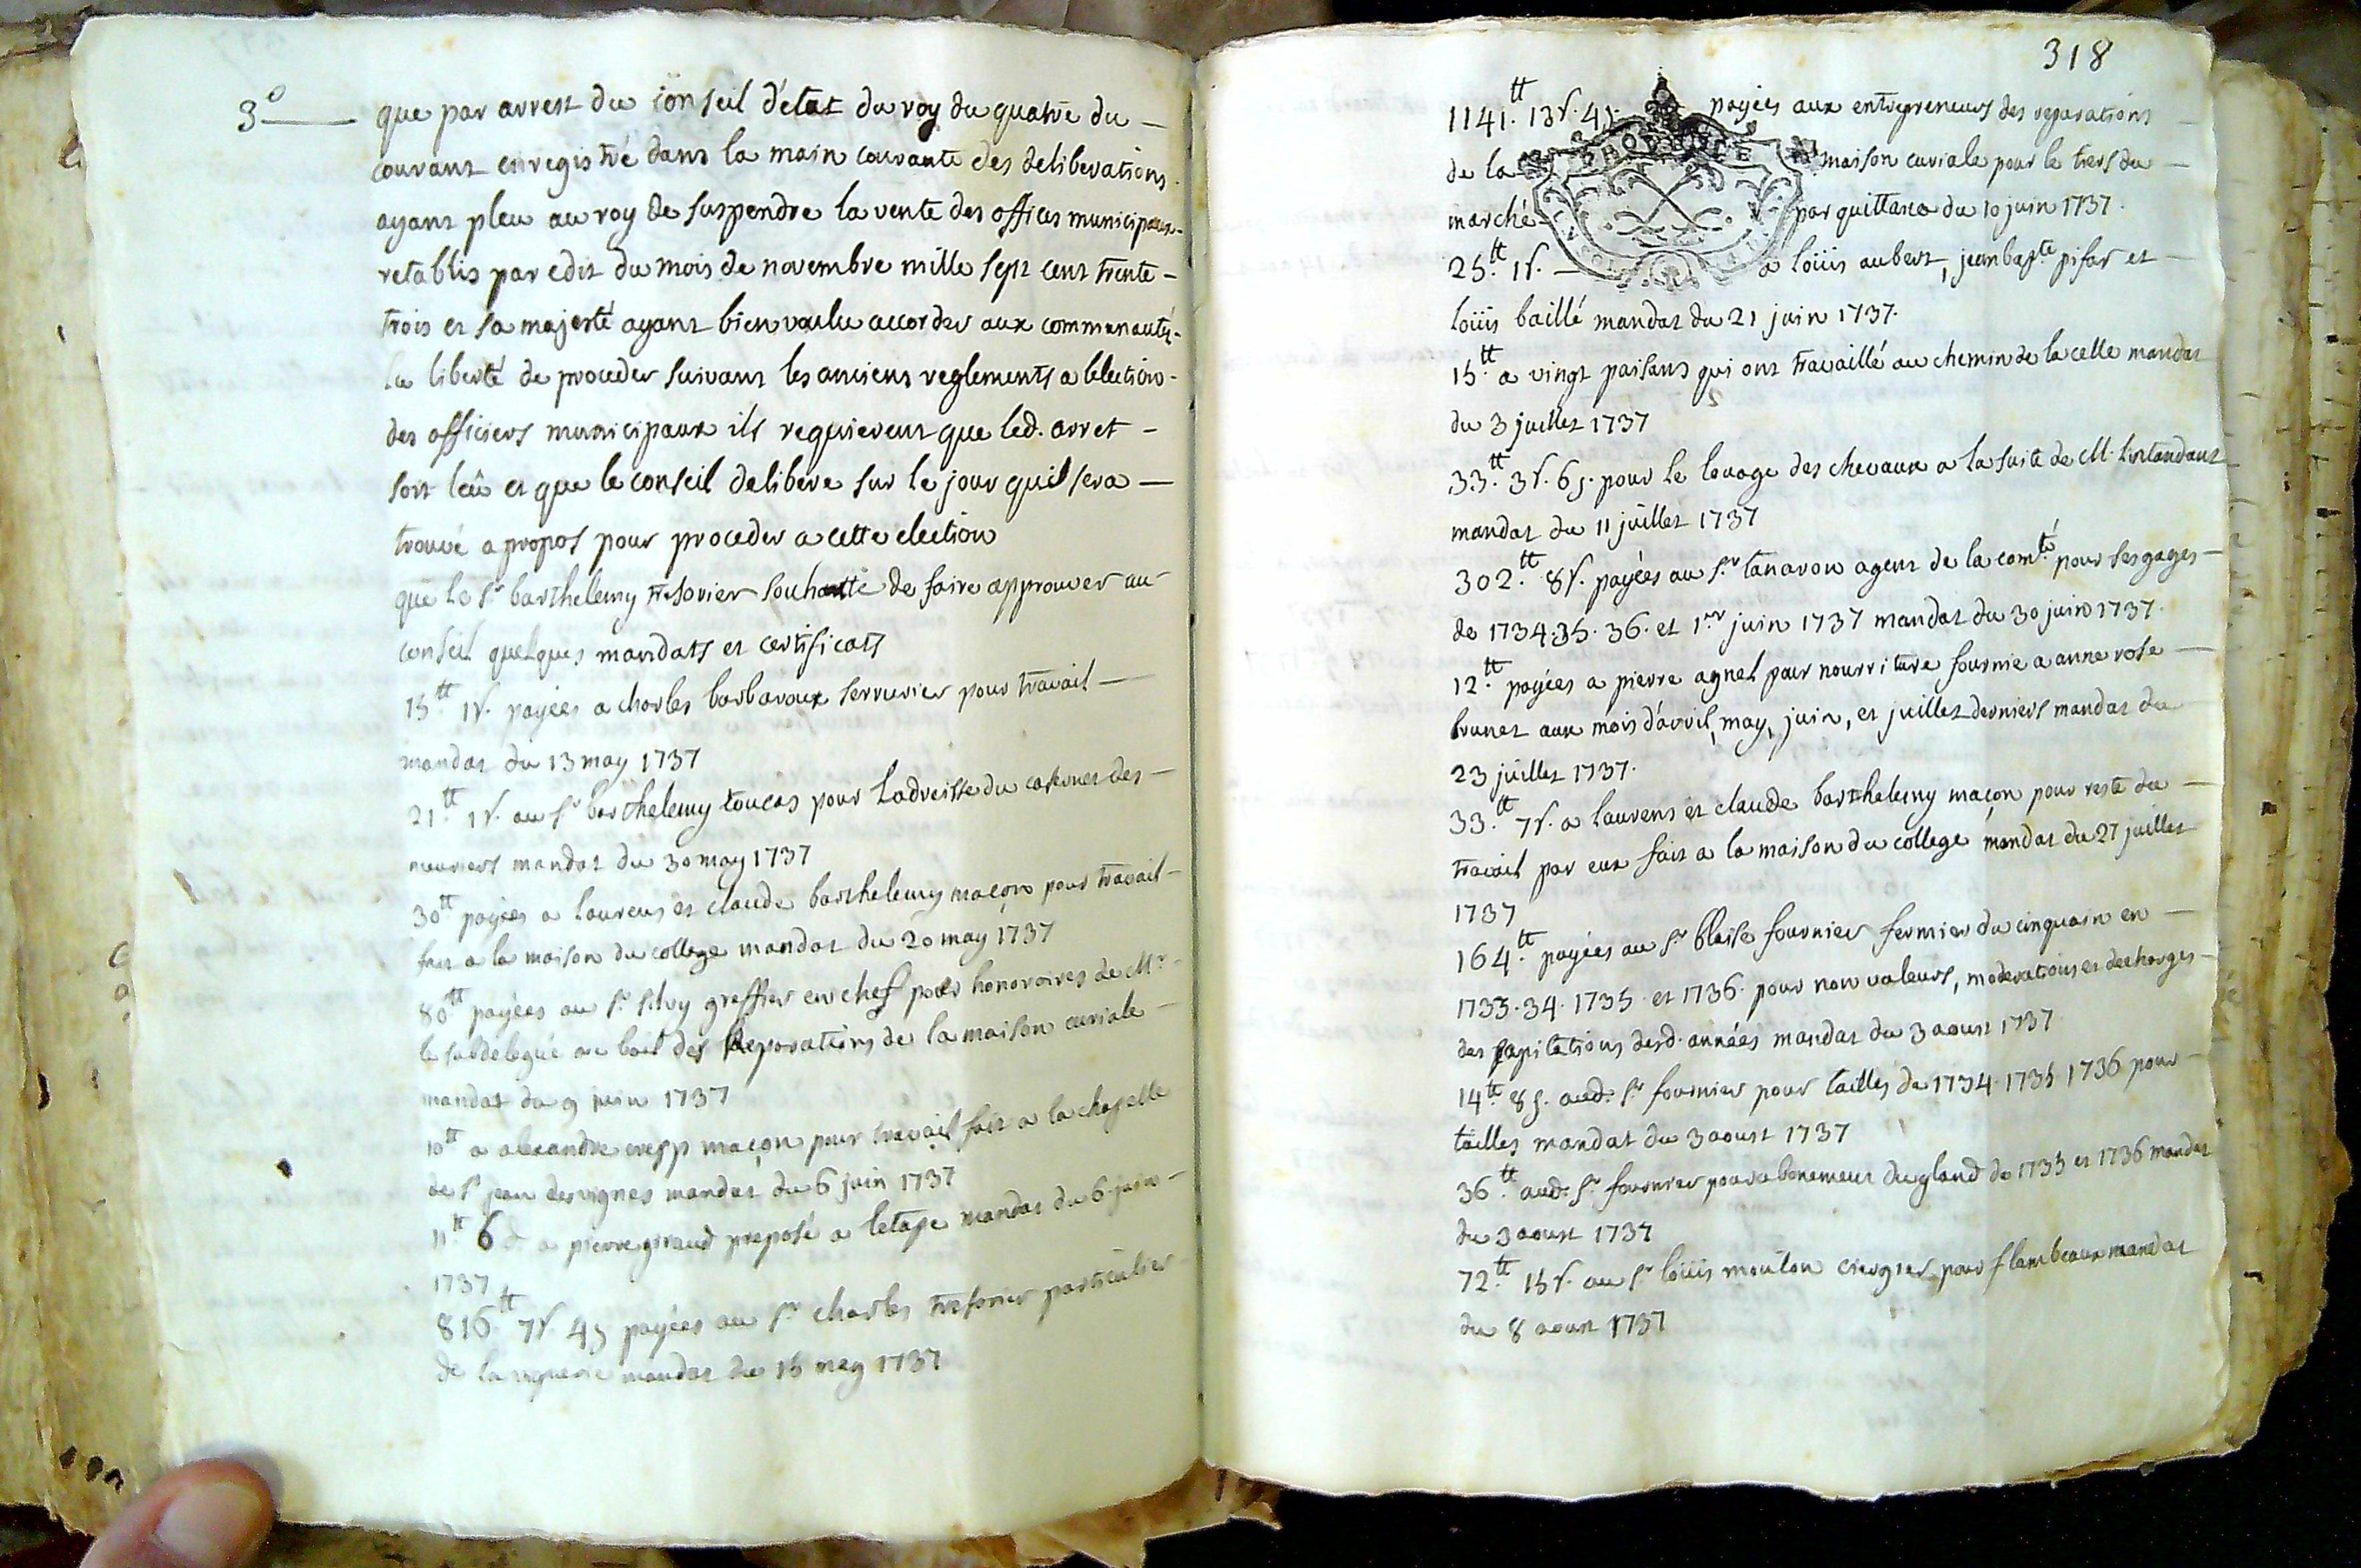 3o que par arrest du conseil d'etat du roy du quatre du
courant enregistré dans la main courante des deliberations
ayant pleu au roy de suspendre la vente des offices municipaux
retablis par edit du mois de novembre mille sept cent trente
trois et sa majesté ayant bien voulu accorder aux communautés
la liberté de proceder suivant les anciens reglements a lelection
des officiers municipaux ils requierent que led. arret
soit leü et que le conseil delibere sur le jour quil sera
trouvé a propos pour proceder a cette election
que le sr barthelemy tresorier souhaitte de faire approuver au
conseil quelques mandats et certificats
15tt 1s. payées a charles barbaroux serrurier pour travail
mandat du 13 may 1737
21tt 1s. au sr barthelemy toucas pour ladreisse du casernet des
meuriers mandat du 30 may 1737
30tt payées a laurens et claude barthelemy maçon pour travail
fait a la maison du college mandat du 20 may 1737
80tt payées au sr silvy greffier en chef pour honoraires de Mr
le subdelegué au bail des reparations de la maison curiale
mandat du 9 juin 1737
10tt a alexandre cresp maçon pour travail fait a la chapelle
de st jean des vignes mandat du 6 juin 1737
11tt 6 d. a pierre giraud preposé a letape mandat du 6 juin
1737
816tt 7s 4d payées au sr charles tresorier particulier
de la viguerie mandat du 15 may 1737
318
1141.tt 13s. 4d. payées aux entrepreneurs des reparations
de la maison curiale pour le tiers du
marché par quittance du 10 juin 1737.
25.tt 1s. a loüis aubert, jean bapte pifar et
loüis baillé mandat du 21 juin 1737.
15.tt a vingt paisans qui ont travaillé au chemin de la celle mandat
du 3 juillet 1737
33.tt 3s. 6d. pour le louage des chevaux a la suite de M. lintandant
mandat du 11 juillet 1737
302.tt 8s. payées au sr tanaron agent de la comté pour ses gages
de 1734.35.36. et 1er juin 1737 mandat du 30 juin 1737.
12.tt payées a pierre agnel pour nourriture fournie a anne rose
brunet aux mois d'avril, may, juin, et juillet derniers mandat du
23 juillet 1737.
33.tt 7s. a laurens et claude barthelemy maçon pour reste du
travail par eux fait a la maison du college mandat du 27 juillet
1737
164.tt payées au sr blaise fournier fermier du cinquain en
1733.34.1735 et 1736. pour non valeurs, moderations et decharges
des capitations desd. années mandat du 3 aoust 1737
14tt 8d. aud. sr fournier pour tailles de 1734.1735 1736 pour
tailles mandat du 3 aoust 1737
36.tt aud. sr fournier pour abonement du gland de 1735 et 1736 mandat
du 3 aoust 1737
72.tt 15s. au sr loüis moulon ciergier pour flambeaux mandat
du 8 aoust 1737